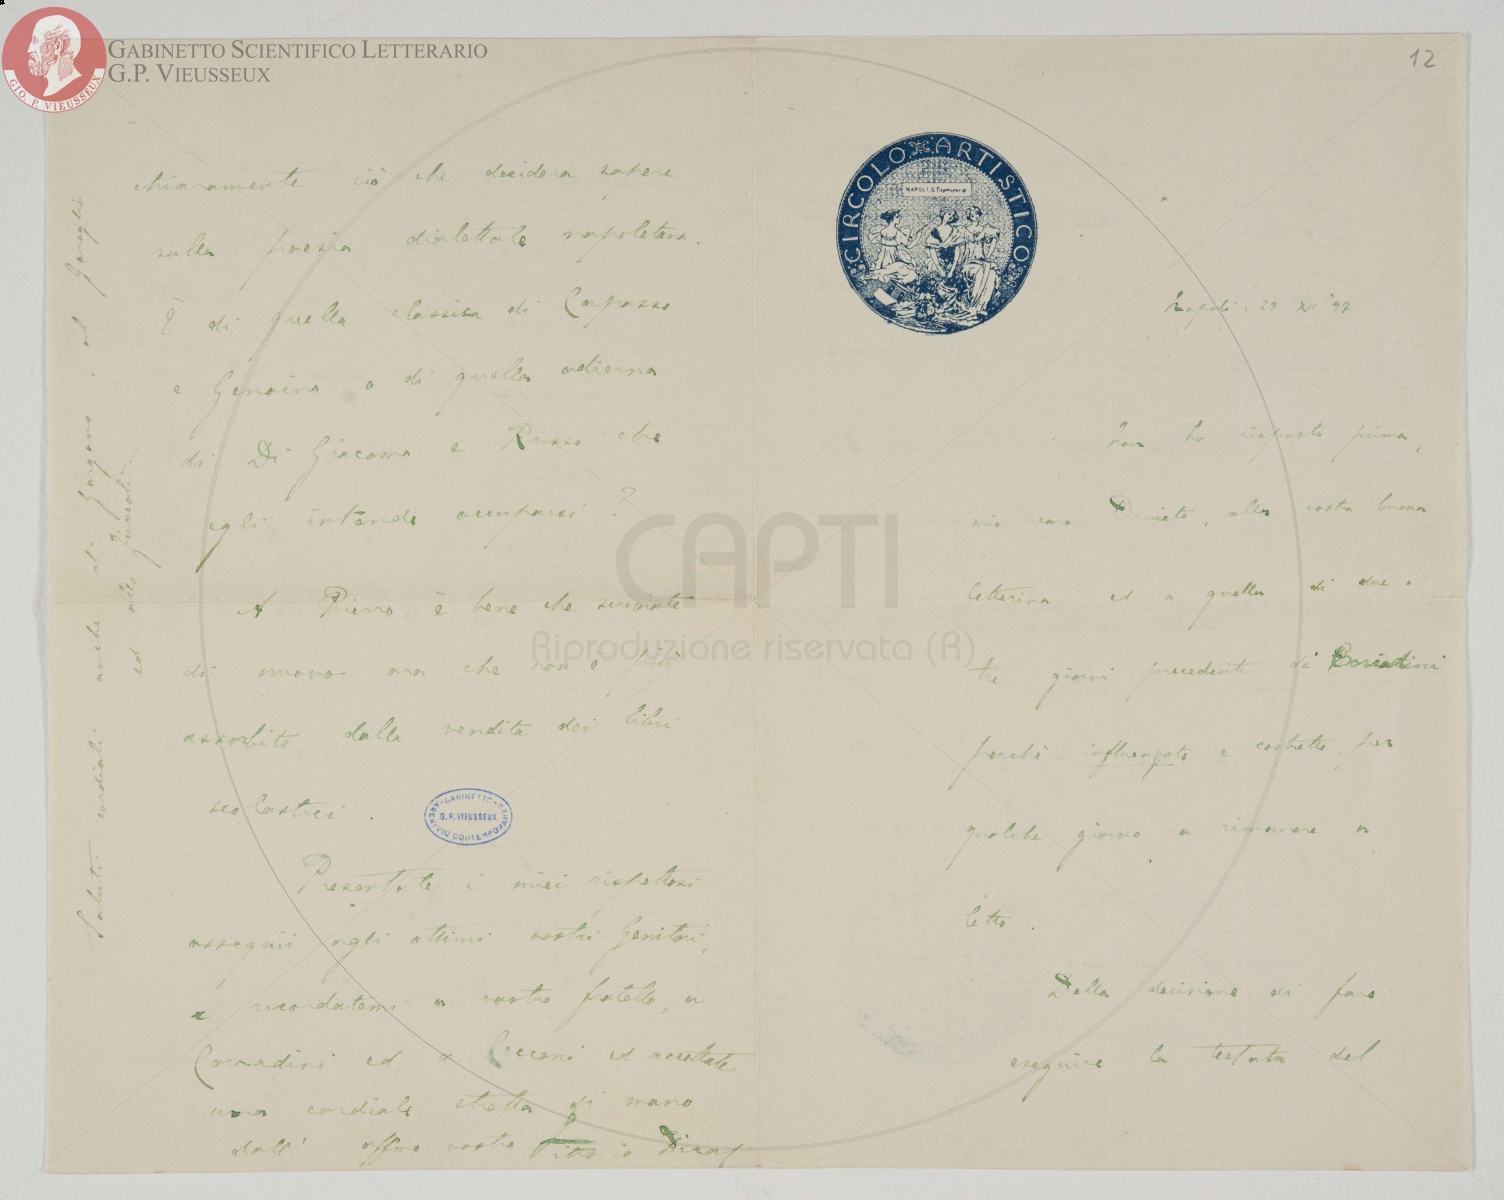 GABINETTO SCIENTIFICO LETTERARIO
G.P. VIEUSSEUX
GIO. P. VIEUSSEUX
12
CIRCOLO ARTISTICO
NAPOLI
Napoli, 29 XII '97
Non ho risposto prima,
mio caro Orvieto, alla vostra buona
letterina ed a quella di due o
tre giorni precedente di
perchè influenzato e costretto per
qualche giorno a rimanere a
letto.
Della decisione di fare
eseguire la testata del
chiaramente ciò che desidera sapere
sulla poesia dialettale napoletana.
È di quella classica di Capasso
e Genoino o di quella odierna
di Di Giacomo e Russo che
egli intende occuparsi?
A Pierro è bene che scriviate
di nuovo ora che non è più
assorbito dalla vendita dei libri
scolastici.
Presentate i miei rispettosi
ossequii agli ottimi vostri Genitori,
e ricordatemi a vostro fratello, a
Corradini ed a Cecconi ed accettate
una cordiale stretta di mano
dall' affmo vostro Vittorio Pica
Saluti cordiali anche al Gargano, al Garoglio
ed allo
GABINETTO G.P. VIEUSSEUX
ARCHIVIO CONTEMPORANEO
CAPTI
Riproduzione riservata (R)